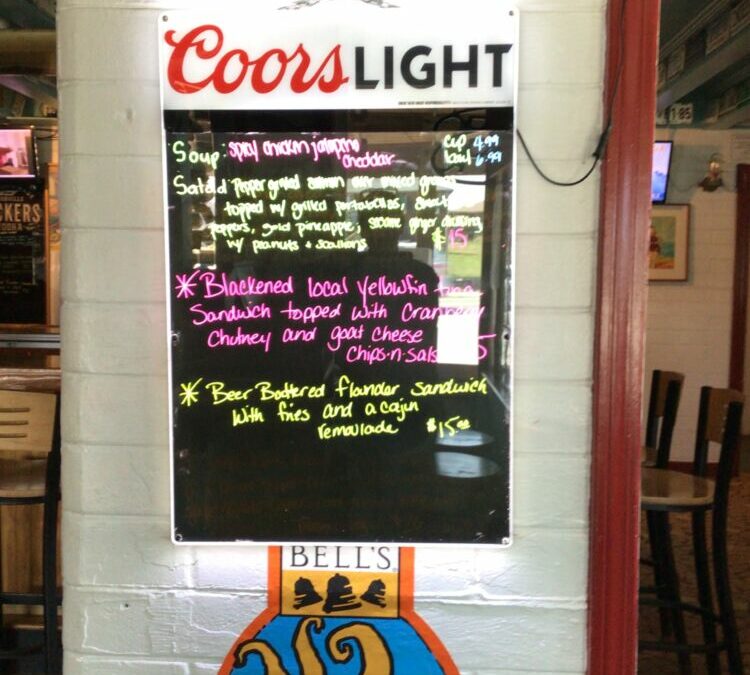 Coors LIGHT
Soup: spicy chicken jalapeno cup 4.99
cheddar bowl 6.99
Salad Pepper grilled salmon over mixed greens
topped w/ grilled portabellas,
peppers, gold pineapple, sesame ginger dressing
w/ peanuts + scallions $15
* Blackened local yellowfin tuna
Sandwich topped with Cranberry
Chutney and goat cheese
Chips-n-Salsa 5
* Beer Battered flounder Sandwich
With fries and a cajun
remoulade $15.00
BELL'S
KERS